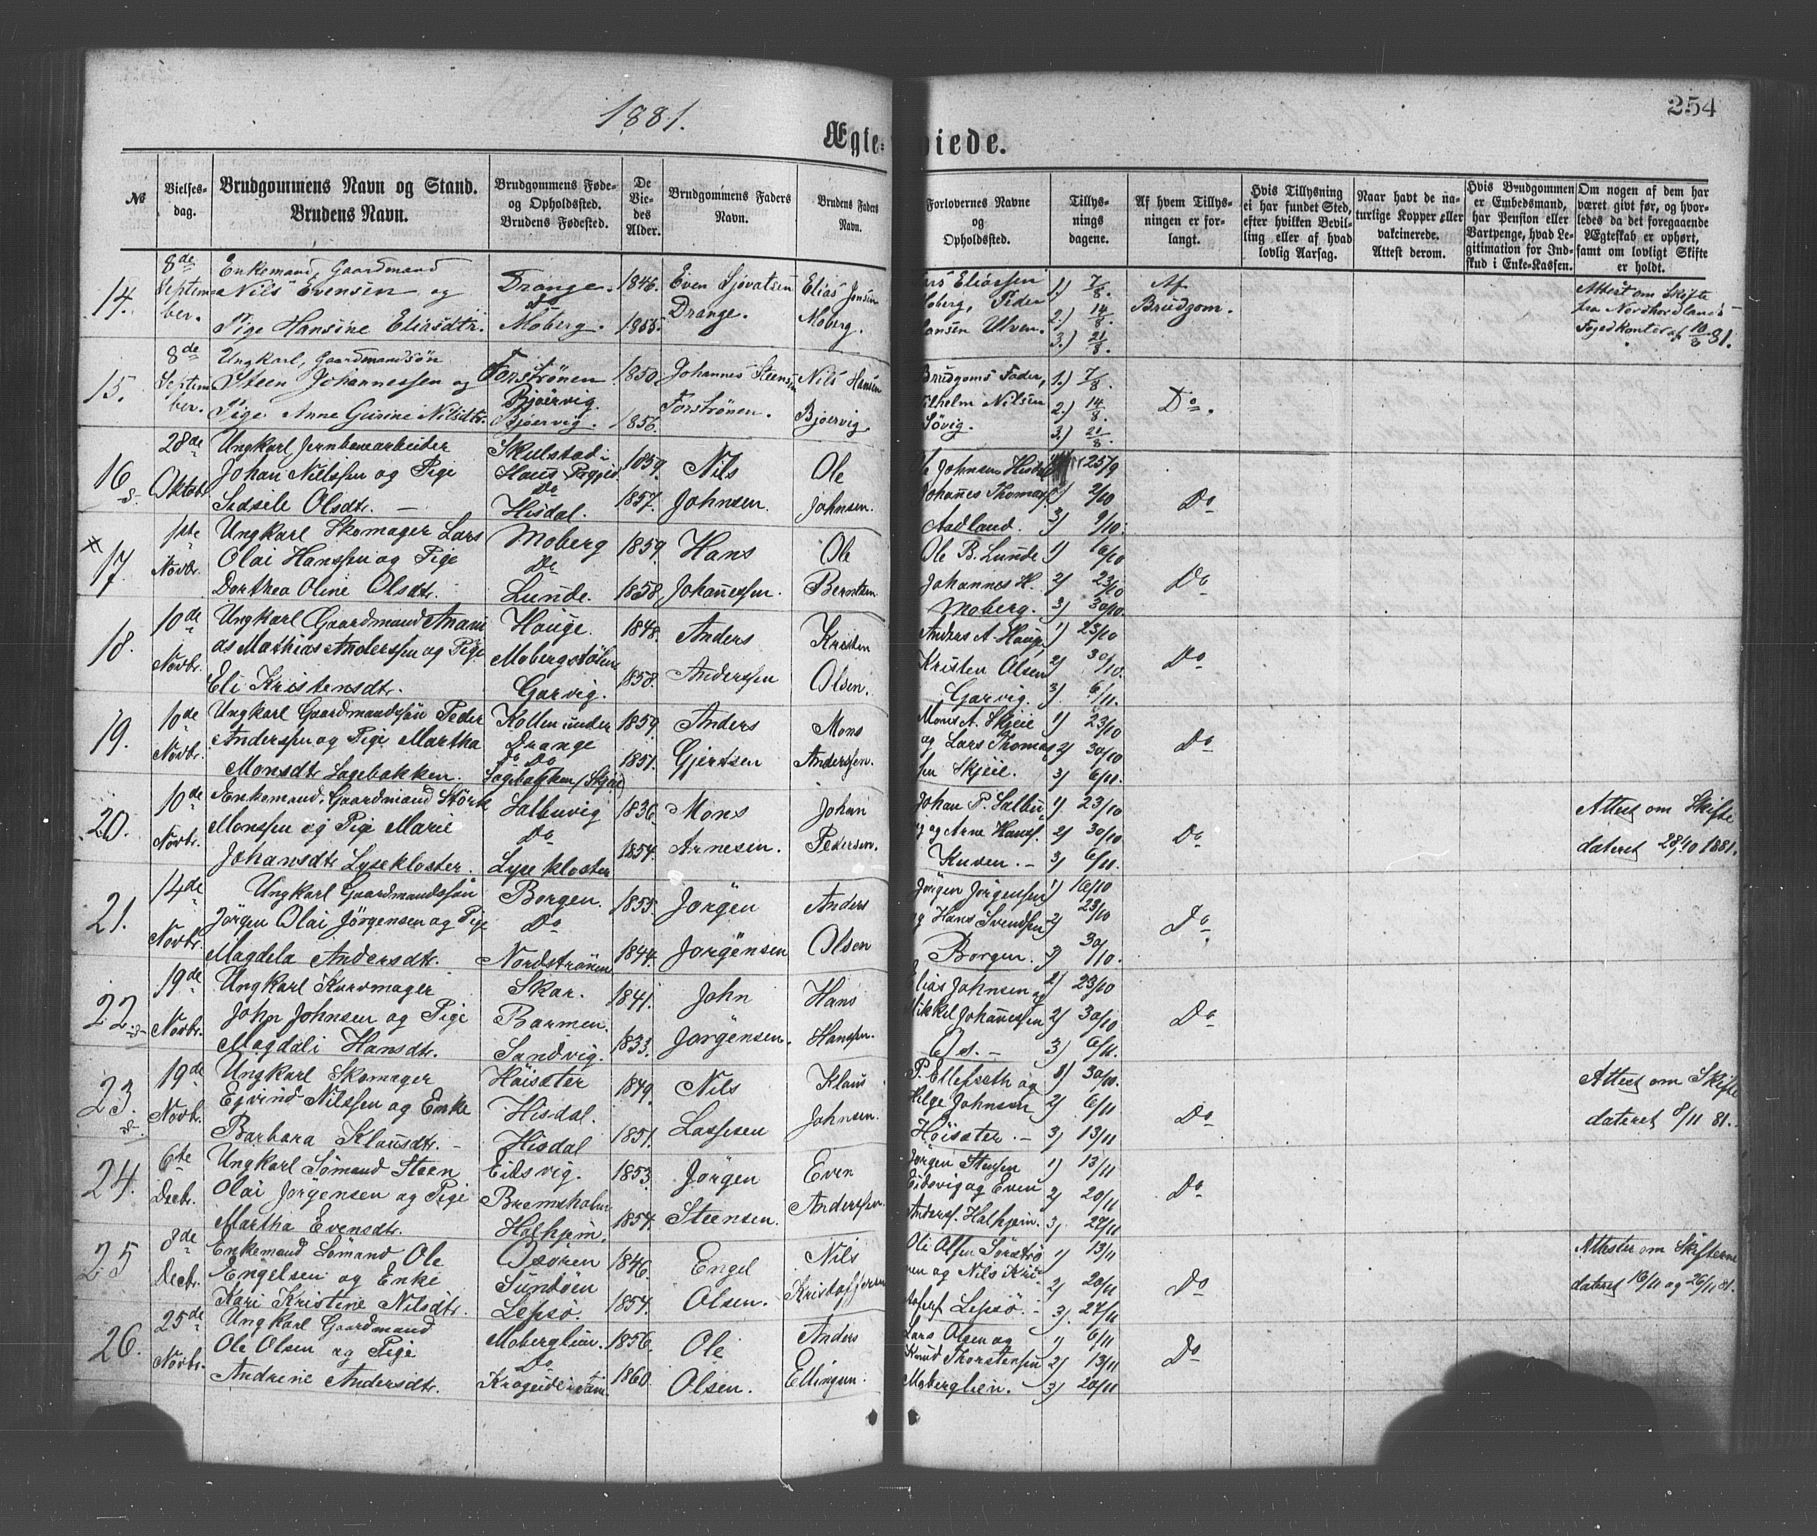 1881.
254
Ægte-viede.
№
Vielses-dag.
Brudgommens Navn og Stand. Brudens Navn.
Brudgommens Føde- og Opholdssted. Brudens Fødested.
De Vie-des Alder.
Brudgommens Faders Navn.
Brudens Faders Navn.
Forlovernes Navne og Opholdsted.
Tillys-nings dagene.
Af hvem Tillys-ningen er for-langt.
Hvis Tillysning ei har fundet Sted, efter hvilken Bevil-ling eller af hvad lovlig Aarsag.
Naar havt de na-turlige Kopper eller vakcinerede. Attest derom.
Hvis Brudgommen er Embedsmand, har Pension eller Vartpenge, hvad Le-gitimation for Ind-skud i Enke-Kassen.
Om nogen af dem har været givt før, og hvor-ledes da det foregaaende Ægteskab er ophørt, samt om lovligt Skifte er holdt.
14. 8de September. Enkemand, Gaardmand Drange. 1846. Even Sjovatsen Elias Jensen Lars Eliassen 1) 7/8. Af Attest om Skifte
Nils Evensen og Do Moberg, Peder 2.) 14/8. Brudgom. fra Nordhordlands
Pige Hansine Eliasdtr. Moberg. 1855. Drange. Moberg. Hansen Ulven. 3.) 21/8. Fogedkontor af 10/8 81.
15. 8de September. Ungkarl, Gaardmandssøn Forstrønen 1850. Johannes Steensen Nils Hansen Brudgoms Fader, 1.) 7/8.
Steen Johannessen og Bjørvig. Vilhelm Nilsen 2.) 14/8. Do.
Pige Anne Gurine Nilsdtr. Bjørvig. 1856. Forstrønen. Bjørvig Søvig. 3.) 21/8.
16 28de Oktob. Ungkarl Jernbanearbeider Skulstad i 1859. Nils Ole Ole Johnsen Hisdal 25/9
Johan Nilssen og Pige Haus Do Johannes Thomas 2/10 Do
Sidsele Olsdtr. Hisdal. 1857. Johnsen. Johnsen. Aadland. 3) 9/10.
17. 1ste Novbr. Ungkarl Skomager Lars Moberg 1859. Hans Ole Ole B. Lunde 1) 16/10
Olai Hanssen og Pige Do Johannes H. 2) 23/10 Do
Dorthea Oline Olsdtr. Lunde. 1858. Johannessen. Berntsen. Moberg. 3) 30/10.
18. 10de Novbr. Ungkarl Gaardmand Anani Hauge. 1848. Anders Kristen Anders A. Hauge 1) 23/10
as Mathias Anderssen og Pige Mobergstølen Kristen Olsen 2) 30/10. Do
Eli Kristensdtr. Garvig. 1858. Anderssen Olsen. Garvig. 3) 6/11.
19. 10de Novbr. Ungkarl Gaardmandssøn Peder Kollen under 1859. Anders Mons Mons A. Skjeie 1) 23/10
Anderssen og Pige Martha Drange Do og Lars Thomas 2) 30/10 Do
Monsdtr. Sagebakken. Sagebakken/Skjeie 1851. Gjertsen Anderssen. sen Skjeie. 3) 6/11.
20. 10de Novbr. Enkemand, Gaardmand Størk Salbuvig 1836. Mons Johan Johan P. Salbu 1) 23/10 Attest om Skifte
Monssen og Pige Marie Do g og Arne Hans. 2) 30/10 Do
Johansdtr. Lysekloster. Lysekloster 1854. Arnesen. Pedersen. Kuven. 3) 6/11. dateret 28/10 1881.
21. 14de Novbr. Ungkarl Gaardmandssøn Borgen. 1855. Jørgen Anders Jørgen Jørgenssen 1) 16/10
Jørgen Olai Jørgensen og Pige Do og Hans Svendsen 2) 23/10 Do
Magdela Andersdtr. Nordstrønen 1844. Jørgensen Olsen Borgen. 3) 30/10.
22. 19de Novbr. Ungkarl Kurvmager Skar. 1841. John Hans Elias Johnsen og 23/10
John Johnsen og Pige Barmen. Mikkel Johannessen 2) 30/10. Do
Magdeli Hansdtr. Sandvig. 1833. Jørgensen. Hanssen. Os. 3) 6/11.
23. 19de Novbr. Ungkarl Skomager Høisæter 1849. Nils Klaus P. Ellefseth og 1) 30/10. Attest om Skifte
Ejvind Nilssen og Enke Hisdal. Helge Johnsen 2) 6/11 Do
Barbara Klausdtr. Hisdal 1851. Lassesen Johnsen. Høisæter. 3) 13/11 dateret 8/11 81.
24. 6te Decbr. Ungkarl Sømand Steen Eidsvig. 1853. Jørgen Even Jørgen Stensen 1) 13/11
Olai Jørgensen og Pige Bremsholm Eidsvig og Even 2) 20/11 Do
Martha Evensdtr. Halhjem. 1854. Steensen. Anderssen. Anders. Halhjem. 3) 27/11
25 8de Decbr. Enkemand Sømand Ole Osøren 1846. Engel Nils Ole Olsen Sørstrø 1) 13/11 Attester om Skifterne
Engelsen og Enke Sundøen nen og Nils Kri 2) 20/11 Do
Kari Kristine Nilsdtr. Lepsø. 1854. Olsen. Kristoffersen Lepsø. 3) 27/11 dateret 16/11 og 26/11 81.
26. 25de Novbr. Ungkarl Gaardmand Moberglien 1856. Ole Anders Lars Olsen og 1) 6/11
Ole Olsen og Pige Do Knud Thorstensen 2) 13/11 Do
Andrine Andersdtr. 1860. Olsen. Ellingsen. Moberglien. 3) 20/11